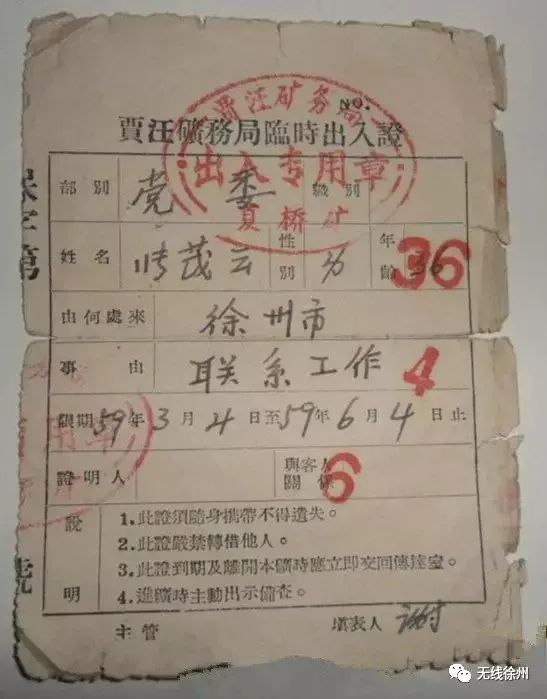 NO.
賈汪礦務局臨時出入證
賈汪矿务局
出入专用章
夏桥矿
部別 党委 職別
姓名 茂云 性別 男 年齡 36
36
由何處來 徐州市
事由 联系工作
4
限期 59年3月4日至59年6月4日止
證明人 與客人關係
6
說明
1.此證須隨身携帶不得遺失。
2.此證嚴禁轉借他人。
3.此證到期及離開本礦時應立即交回傳達室。
4.進礦時主動出示備查。
主管 填表人
字第
號
无线徐州